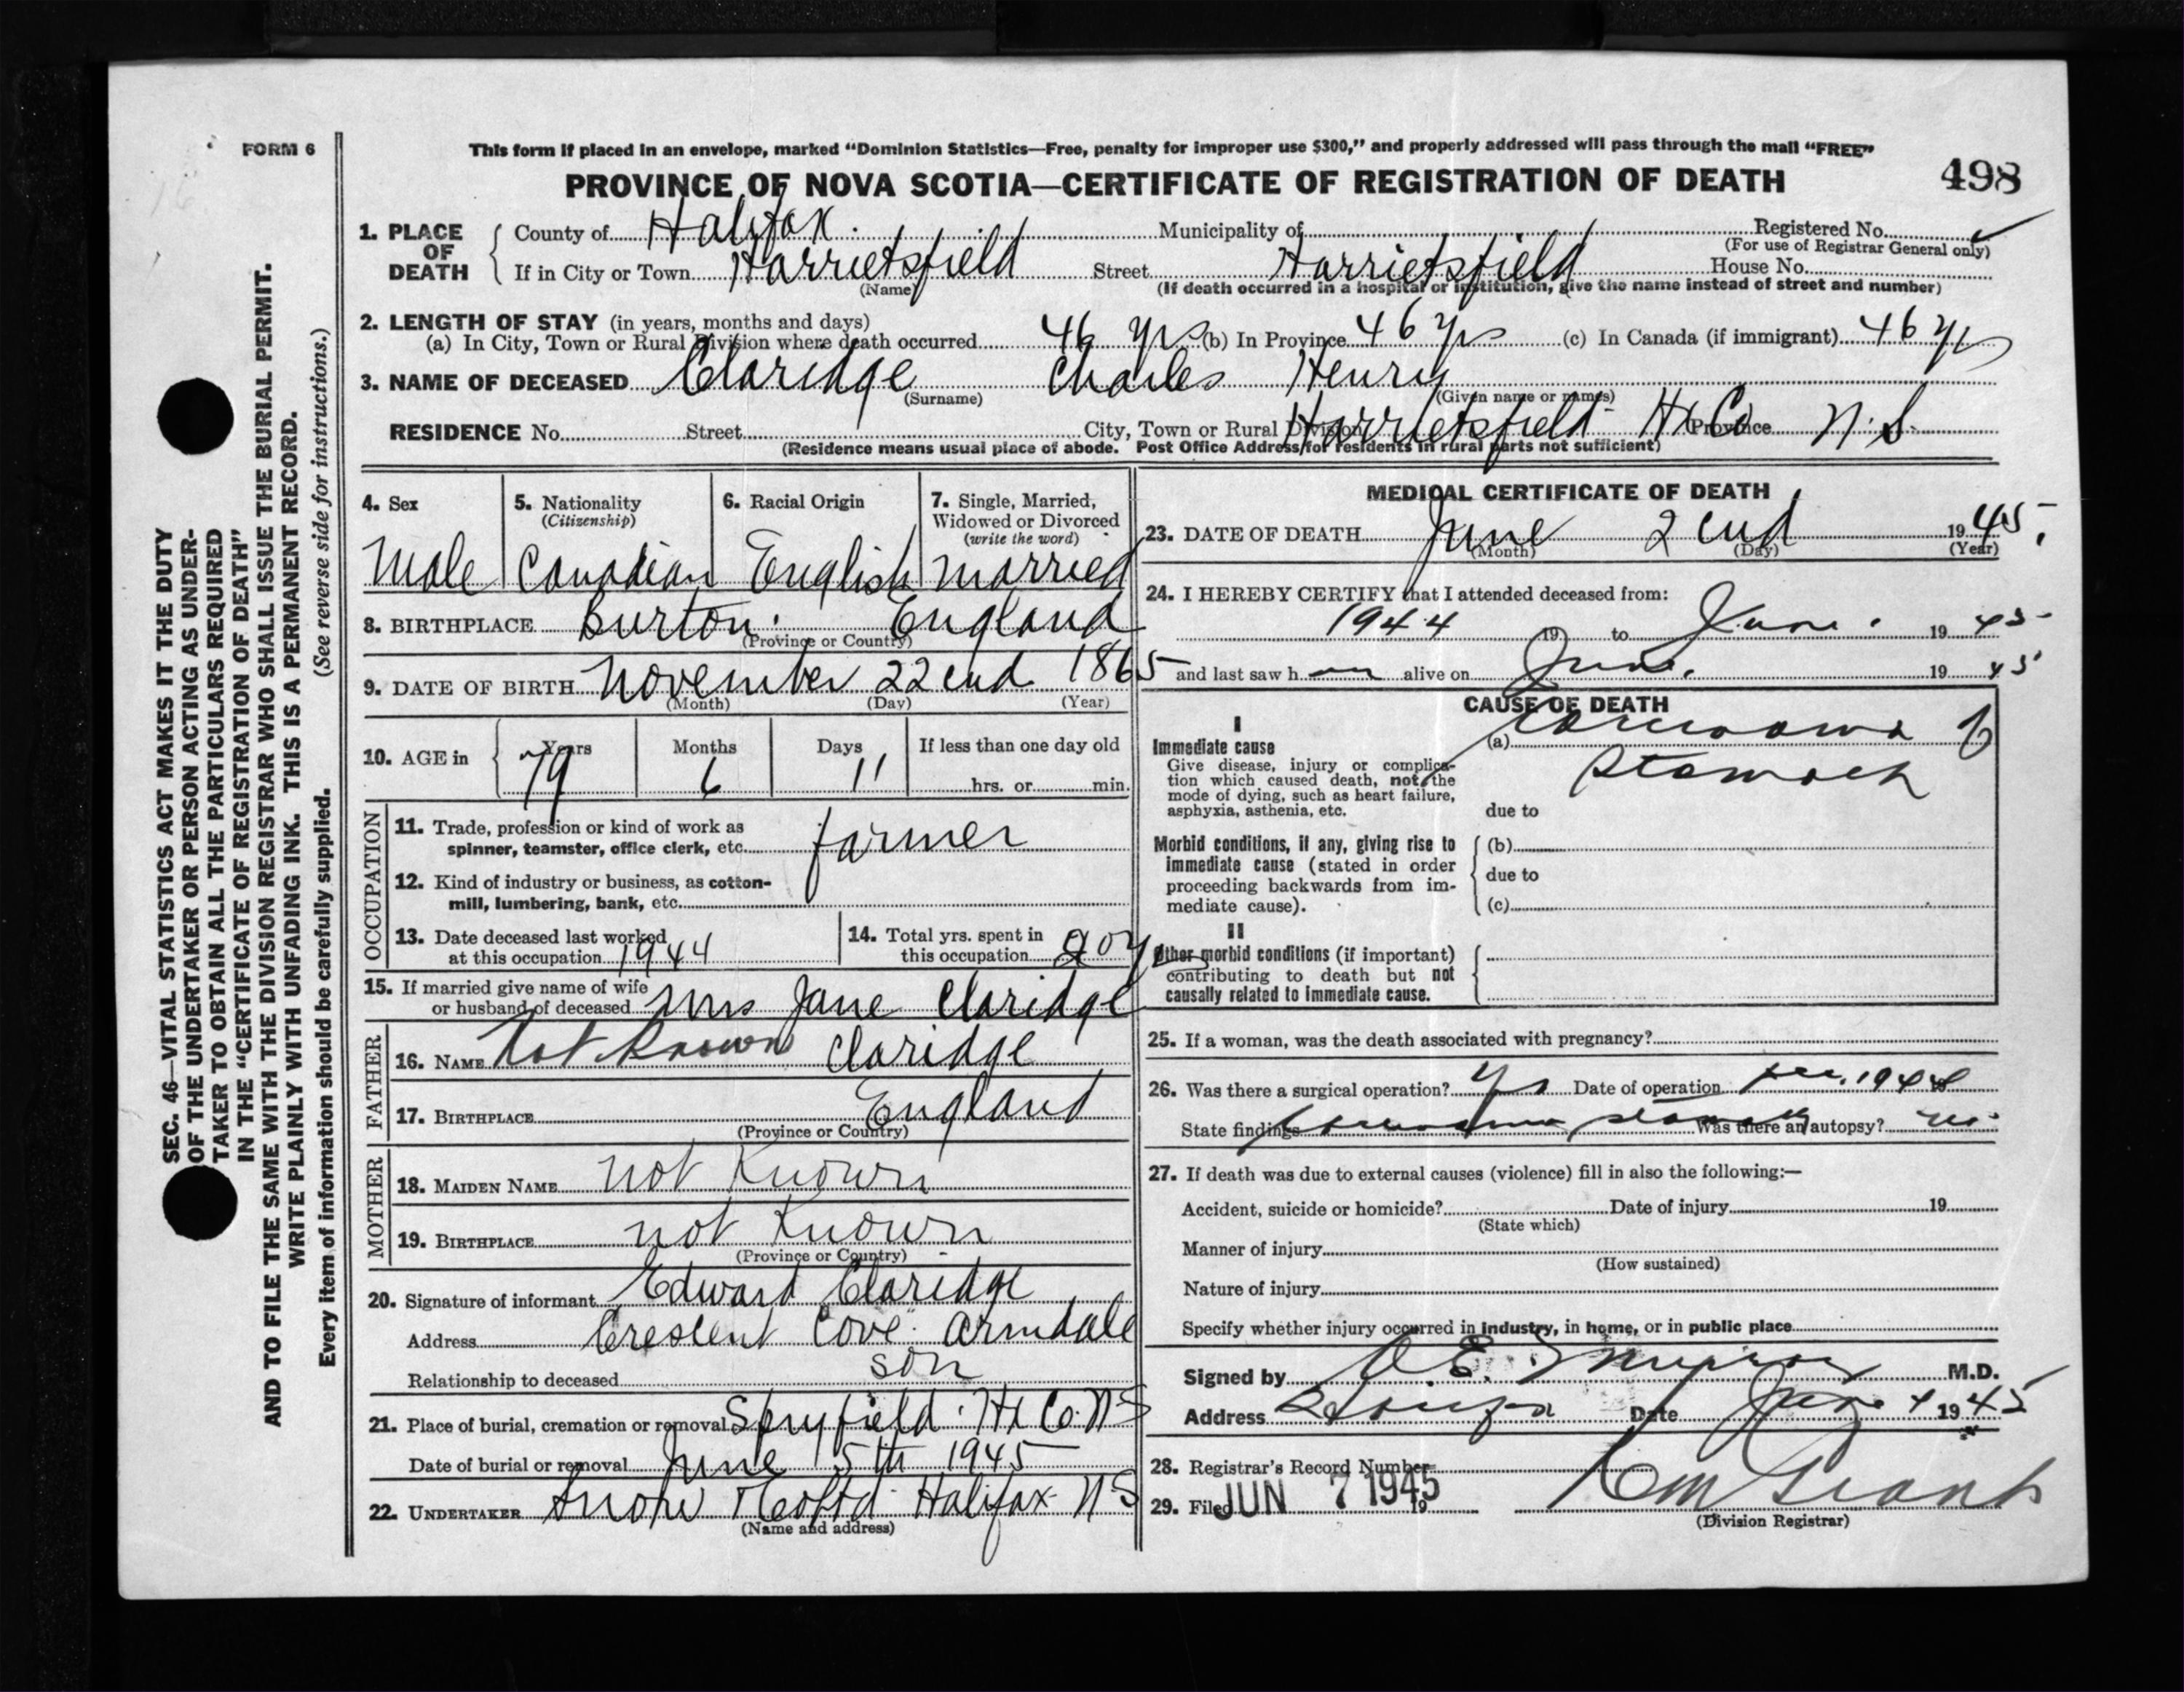 FORM 6
This form if placed in an envelope, marked “Dominion Statistics—Free, penalty for improper use $300,” and properly addressed will pass through the mail “FREE”
PROVINCE OF NOVA SCOTIA—CERTIFICATE OF REGISTRATION OF DEATH
498
SEC. 46—VITAL STATISTICS ACT MAKES IT THE DUTY
OF THE UNDERTAKER OR PERSON ACTING AS UNDER-
TAKER TO OBTAIN ALL THE PARTICULARS REQUIRED
IN THE “CERTIFICATE OF REGISTRATION OF DEATH”
AND TO FILE THE SAME WITH THE DIVISION REGISTRAR WHO SHALL ISSUE THE BURIAL PERMIT.
WRITE PLAINLY WITH UNFADING INK. THIS IS A PERMANENT RECORD.
Every item of information should be carefully supplied. (See reverse side for instructions.)
1. PLACE OF DEATH
County of Halifax Municipality of Registered No.
(For use of Registrar General only)
If in City or Town Harrietsfield Street Harrietsfield House No.
(Name) (If death occurred in a hospital or institution, give the name instead of street and number)
2. LENGTH OF STAY (in years, months and days)
(a) In City, Town or Rural Division where death occurred 46 yrs (b) In Province 46 yrs (c) In Canada (if immigrant) 46 yrs
3. NAME OF DECEASED Claridge Charles Henry
(Surname) (Given name or names)
RESIDENCE No. Street City, Town or Rural Division Harrietsfield Hx Co Province N.S.
(Residence means usual place of abode. Post Office Address for residents in rural parts not sufficient)
4. Sex
Male
5. Nationality
(Citizenship)
Canadian
6. Racial Origin
English
7. Single, Married,
Widowed or Divorced
(write the word)
married
8. BIRTHPLACE Burton. England
(Province or Country)
9. DATE OF BIRTH November 22end 1865
(Month) (Day) (Year)
10. AGE in
Years 79
Months 6
Days 11
If less than one day old
hrs. or min.
OCCUPATION
11. Trade, profession or kind of work as
spinner, teamster, office clerk, etc. farmer
12. Kind of industry or business, as cotton-
mill, lumbering, bank, etc.
13. Date deceased last worked
at this occupation 1944
14. Total yrs. spent in
this occupation
15. If married give name of wife
or husband of deceased Mrs Jane Claridge
FATHER
16. NAME Not Known Claridge
17. BIRTHPLACE England
(Province or Country)
MOTHER
18. MAIDEN NAME not Known
19. BIRTHPLACE not Known
(Province or Country)
20. Signature of informant Edward Claridge
Address Crescent Cove Armdale
Relationship to deceased son
21. Place of burial, cremation or removal Spryfield. Hx Co. NS
Date of burial or removal June 5th 1945
22. UNDERTAKER Snow & Co Ltd Halifax NS
(Name and address)
MEDICAL CERTIFICATE OF DEATH
23. DATE OF DEATH June 2end 1945.
(Month) (Day) (Year)
24. I HEREBY CERTIFY that I attended deceased from:
1944 19 to June. 1945
and last saw h alive on June. 1945
CAUSE OF DEATH
I
Immediate cause
Give disease, injury or complica-
tion which caused death, not the
mode of dying, such as heart failure,
asphyxia, asthenia, etc.
(a) Carcinoma of
Stomach
due to
Morbid conditions, if any, giving rise to
immediate cause (stated in order
proceeding backwards from im-
mediate cause).
(b)
due to
(c)
II
Other morbid conditions (if important)
contributing to death but not
causally related to immediate cause.
25. If a woman, was the death associated with pregnancy?
26. Was there a surgical operation? Yes Date of operation 1944
State findings Carcinoma stomach Was there an autopsy? no
27. If death was due to external causes (violence) fill in also the following:—
Accident, suicide or homicide? Date of injury 19
(State which)
Manner of injury
(How sustained)
Nature of injury
Specify whether injury occurred in industry, in home, or in public place
Signed by M.D.
Address Date June 4 1945
28. Registrar's Record Number
29. Filed JUN 7 1945 19
(Division Registrar)